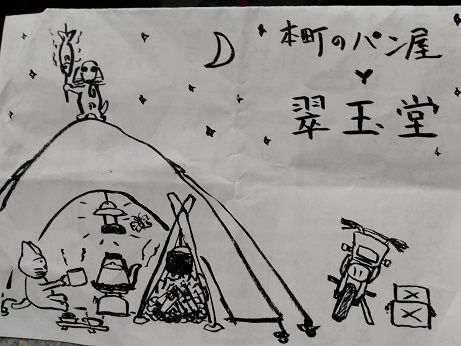 本町のパン屋
翠玉堂